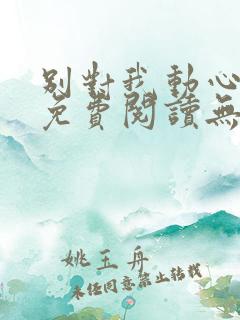 別對我動心
免費閱讀無
姚玉舟
未经同意禁止转载